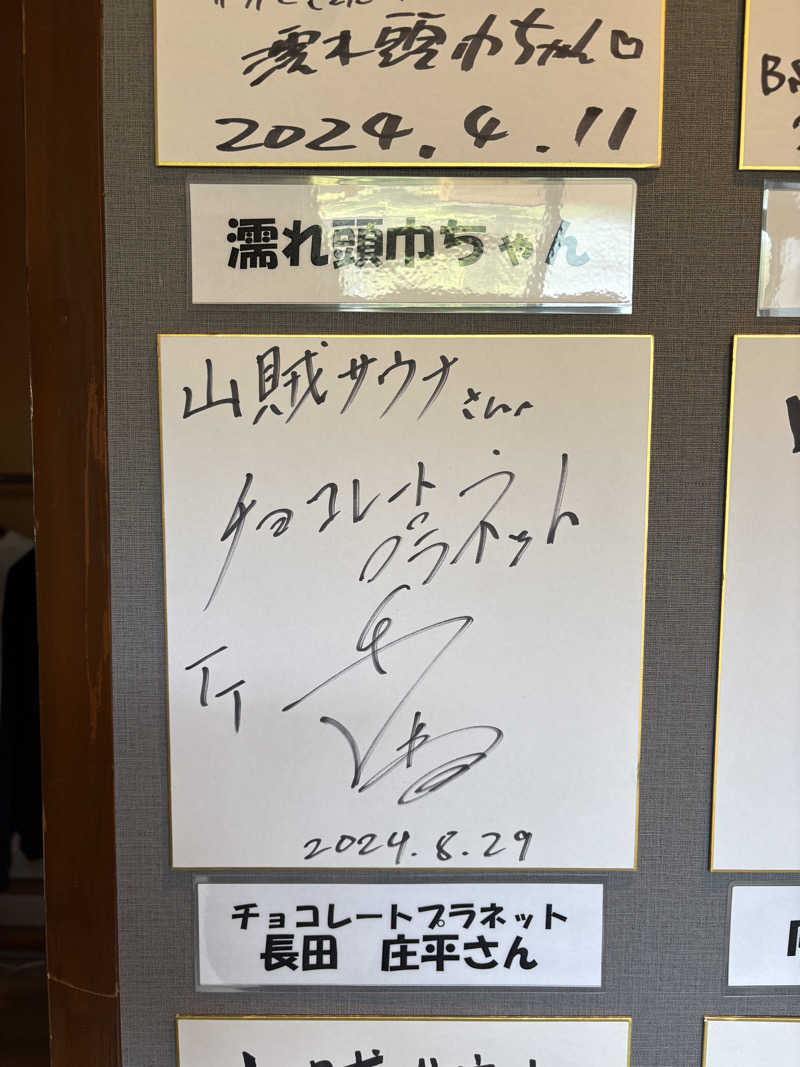 濡れ頭巾ちゃん♡
2024.4.11
濡れ頭巾ちゃん
山賊サウナさんへ
チョコレート
プラネット
TT
2024.8.29
チョコレートプラネット
長田 庄平さん